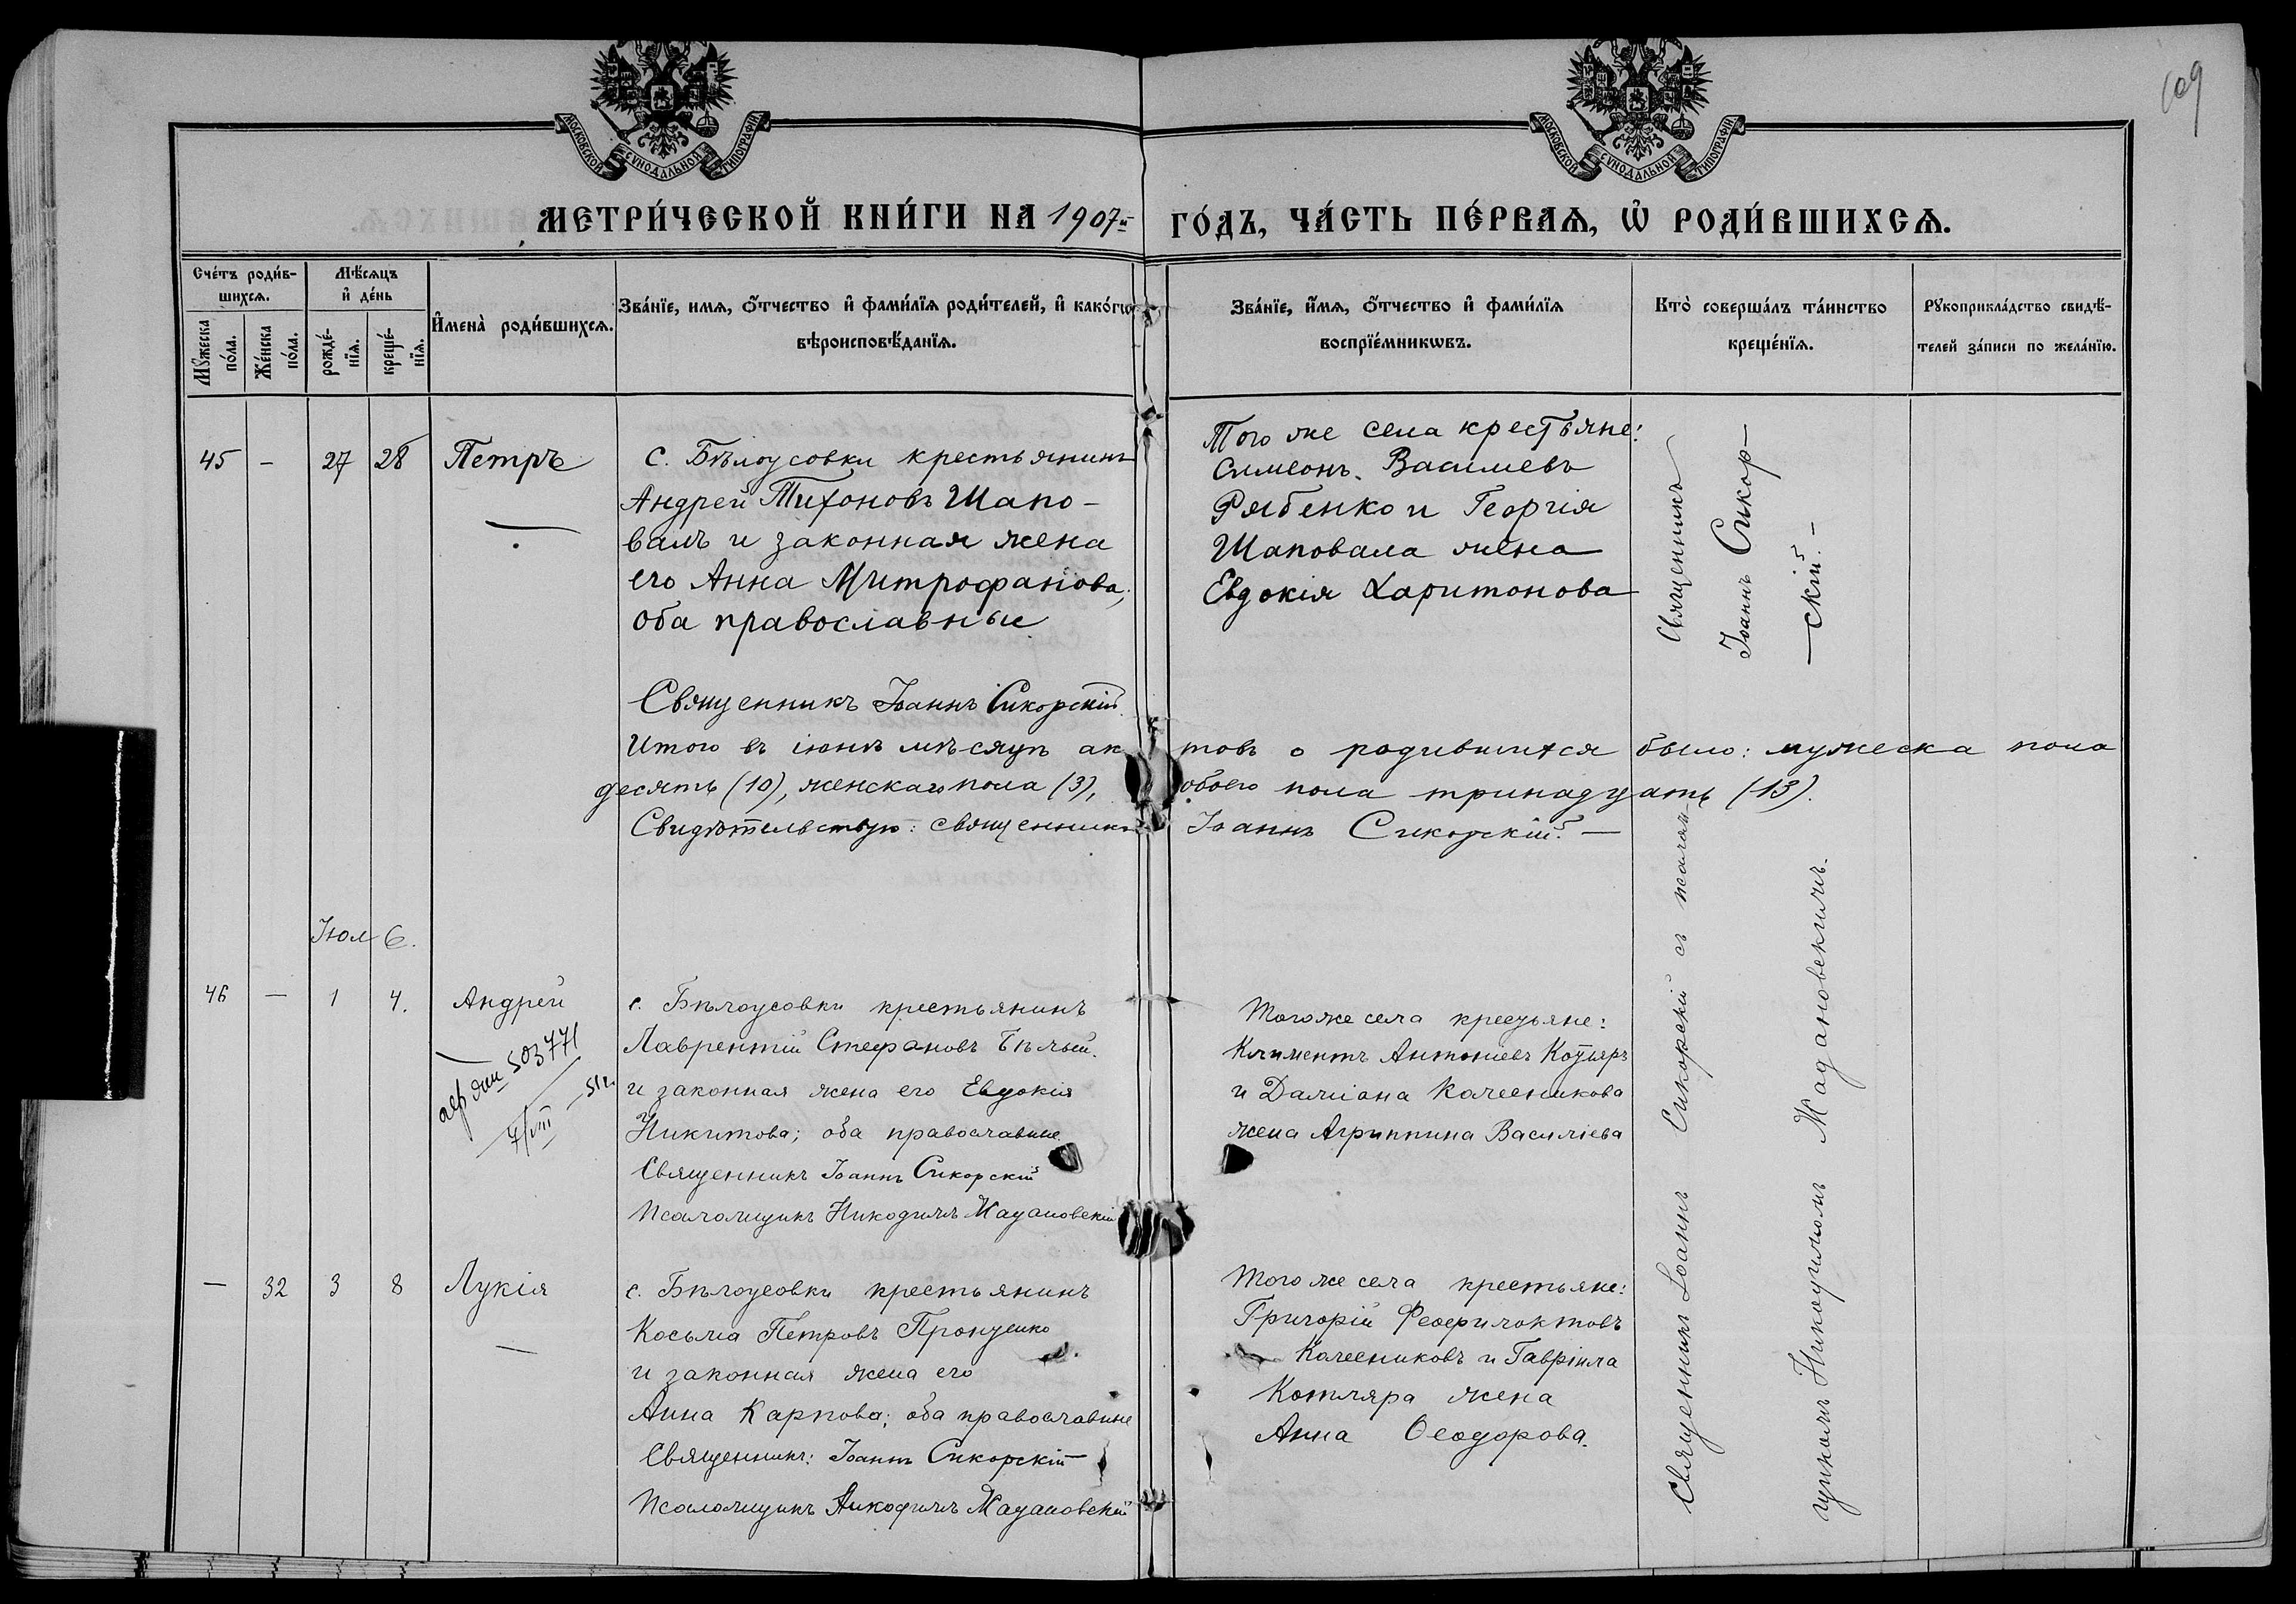 109
МОСКОВСКОЙ СѴНОДАЛЬНОЙ ТИПОГРАФІИ
МОСКОВСКОЙ СѴНОДАЛЬНОЙ ТИПОГРАФІИ
МЕТРИ́ЧЕСКОЙ КНИ́ГИ НА 1907-й ГО́ДЪ, ЧА́СТЬ ПЕ́РВАѦ, Ѡ҆ РОДИ́ВШИХСѦ.
Сче́тъ роди́в-
шихсѧ.
Мꙋ́жеска
по́ла.
Же́нска
по́ла.
Мѣ́сѧцъ
и҆ де́нь
рожде́-
нїѧ.
креще́-
нїѧ.
И҆мена̀ роди́вшихсѧ.
Зва́нїе, имѧ, ѻ҆́тчество и҆ фами́лїѧ роди́телей, и҆ како́гѡ
вѣроисповѣ́данїѧ.
Зва́нїе, и҆́мѧ, ѻ҆́тчество и҆ фами́лїѧ
воспрїе́мникѡвъ.
Кто̀ соверша́лъ та́инство
креще́нїѧ.
Рꙋкоприкла́дство свидѣ́-
телей за́писи по жела́нїю.
45 - 27 28 Петръ
с. Бѣлоусовки крестьянинъ
Андрей Тихоновъ Шапо-
валъ и законная жена
его Анна Митрофанова;
оба православные
Священникъ Іоаннъ Сикорскій.
Того же села крестьяне:
Симеонъ Василіевъ
Рябенко и Георгія
Шаповала жена
Евдокія Харитонова
Священникъ
Іоаннъ Сикор-
-скій.-
Итого въ іюнѣ мѣсяцѣ актовъ о родившихся было: мужеска пола
десять (10), женскаго пола (3), обоего пола тринадцать (13).
Свидѣтельствую: священникъ Іоаннъ Сикорскій.-
Іюль.
46 - 1 4. Андрей
503771
7/VIII - 51г.
с. Бѣлоусовки крестьянинъ
Лаврентій Стефановъ Бѣлый
и законная жена его Евдокія
Никитова; оба православные.
Священникъ Іоаннъ Сикорскій
Псаломщикъ Никодимъ Мадановскій
Того же села крестьяне:
Климентъ Антоніевъ Котляръ
и Даміана Колесникова
жена Агриппина Василіева
- 32 3 8 Лукія
с. Бѣлоусовки крестьянинъ
Косьма Петровъ Проценко
и законная жена его
Анна Карпова; оба православные
Священникъ: Іоаннъ Сикорскій
Псаломщикъ Никодимъ Мадановскій
Того же села крестьяне:
Григорій Феофилактовъ
Колесниковъ и Гавріила
Котляра жена
Анна Ѳеодорова.
Священникъ Іоаннъ Сикорскій съ псалом-
щикомъ Никодимомъ Мадановскимъ.